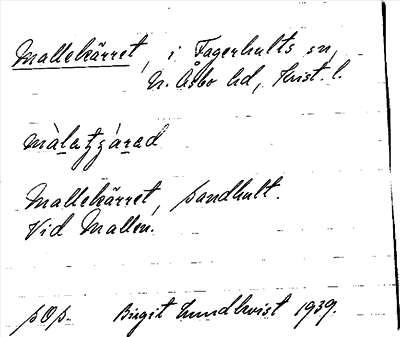 Mallekärret, i Fagerhults sn,
N. Åsbo hd, Krist. l.
Mallekärret, Sandhult.
Vid Mallen.
Birgit Lundkvist 1939.